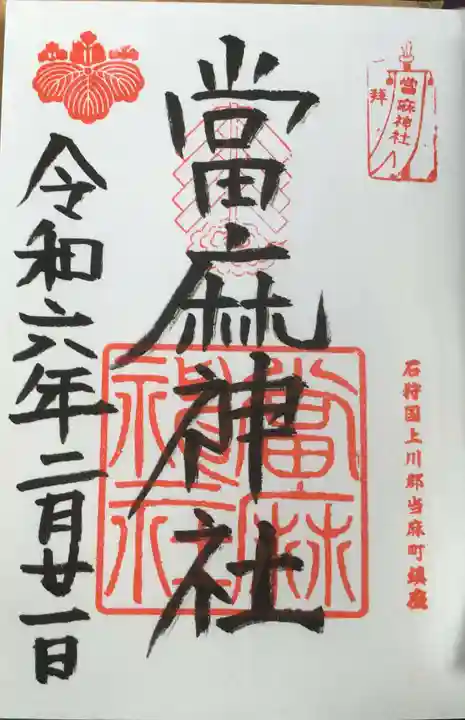 當麻神社
一拝
石狩国上川郡当麻町鎮座
當麻神社
當麻神社
令和六年二月廿一日